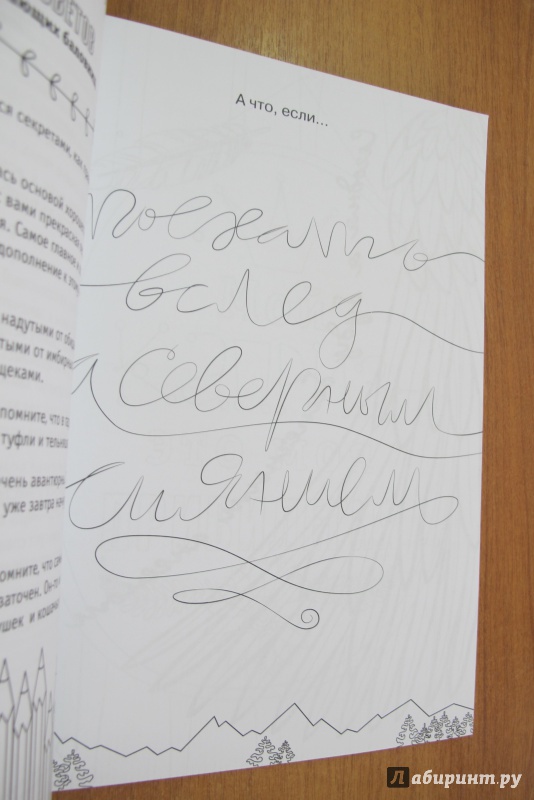 ЦВЕТОВ
ся секретами, как
ась основой хорош
вами прекрасна
я. Самое главное
дополнение к этом
надутыми от оби
тыми от имбирн
щеками.
помните, что в
туфли и тельня
очень авантюрн
уже завтра нач
омните, что сам
заточен. Он-то
ушек и кошеч
А что, если...
поехать
вслед
за северным
сиянием
Лабиринт.ру